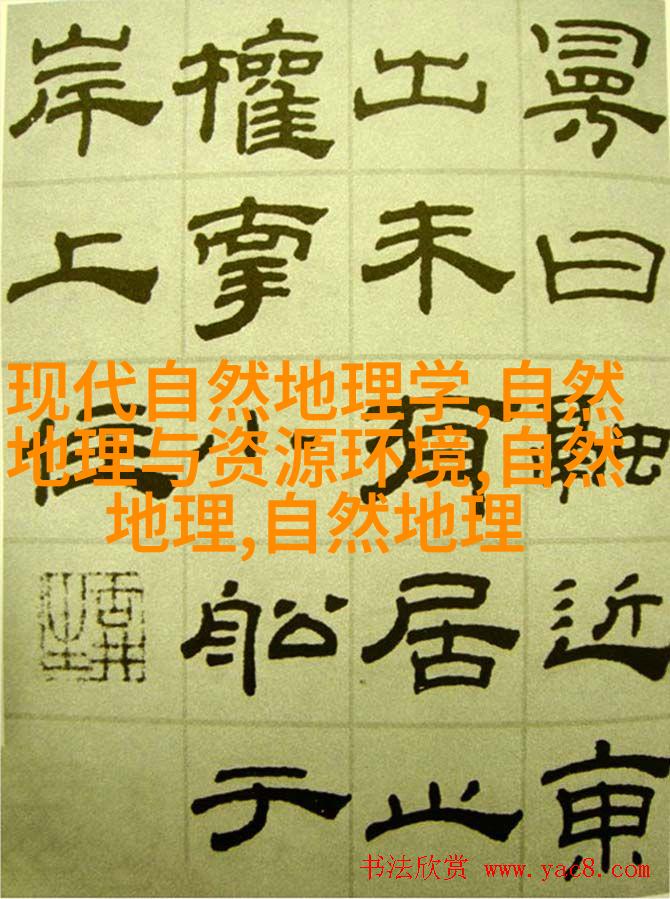 曰融近東
出未有居止
權牽小船于
岸上住
现代自然地理学,自然
地理与资源环境,自然
地理,自然地理
书法欣赏 www.yac8.com